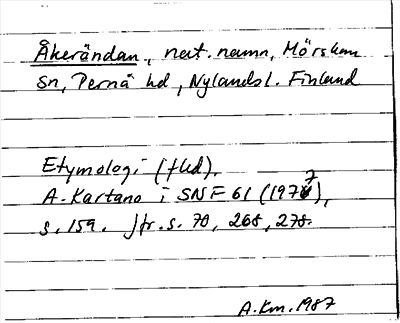 Åkerändan, nat. namn, Mörskom
sn, Pernå hd, Nylands l. Finland
Etymologi (fled).
A. Kartano i SNF 61 (1977),
s. 159. Jfr. s. 70, 268, 278.
A.Km. 1987